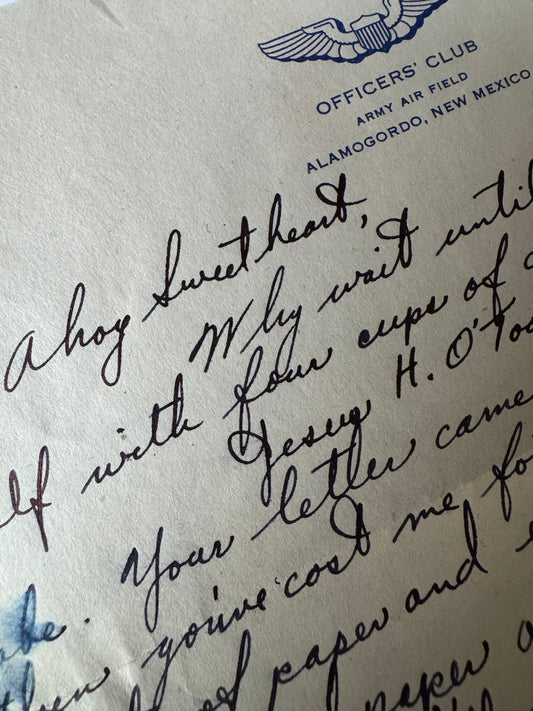 OFFICERS' CLUB
ARMY AIR FIELD
ALAMOGORDO, NEW MEXICO
Ahoy Sweetheart,
Why wait until
with four cups of
Jesus H. O'Too
Your letter came
you've cost me
of paper and
paper